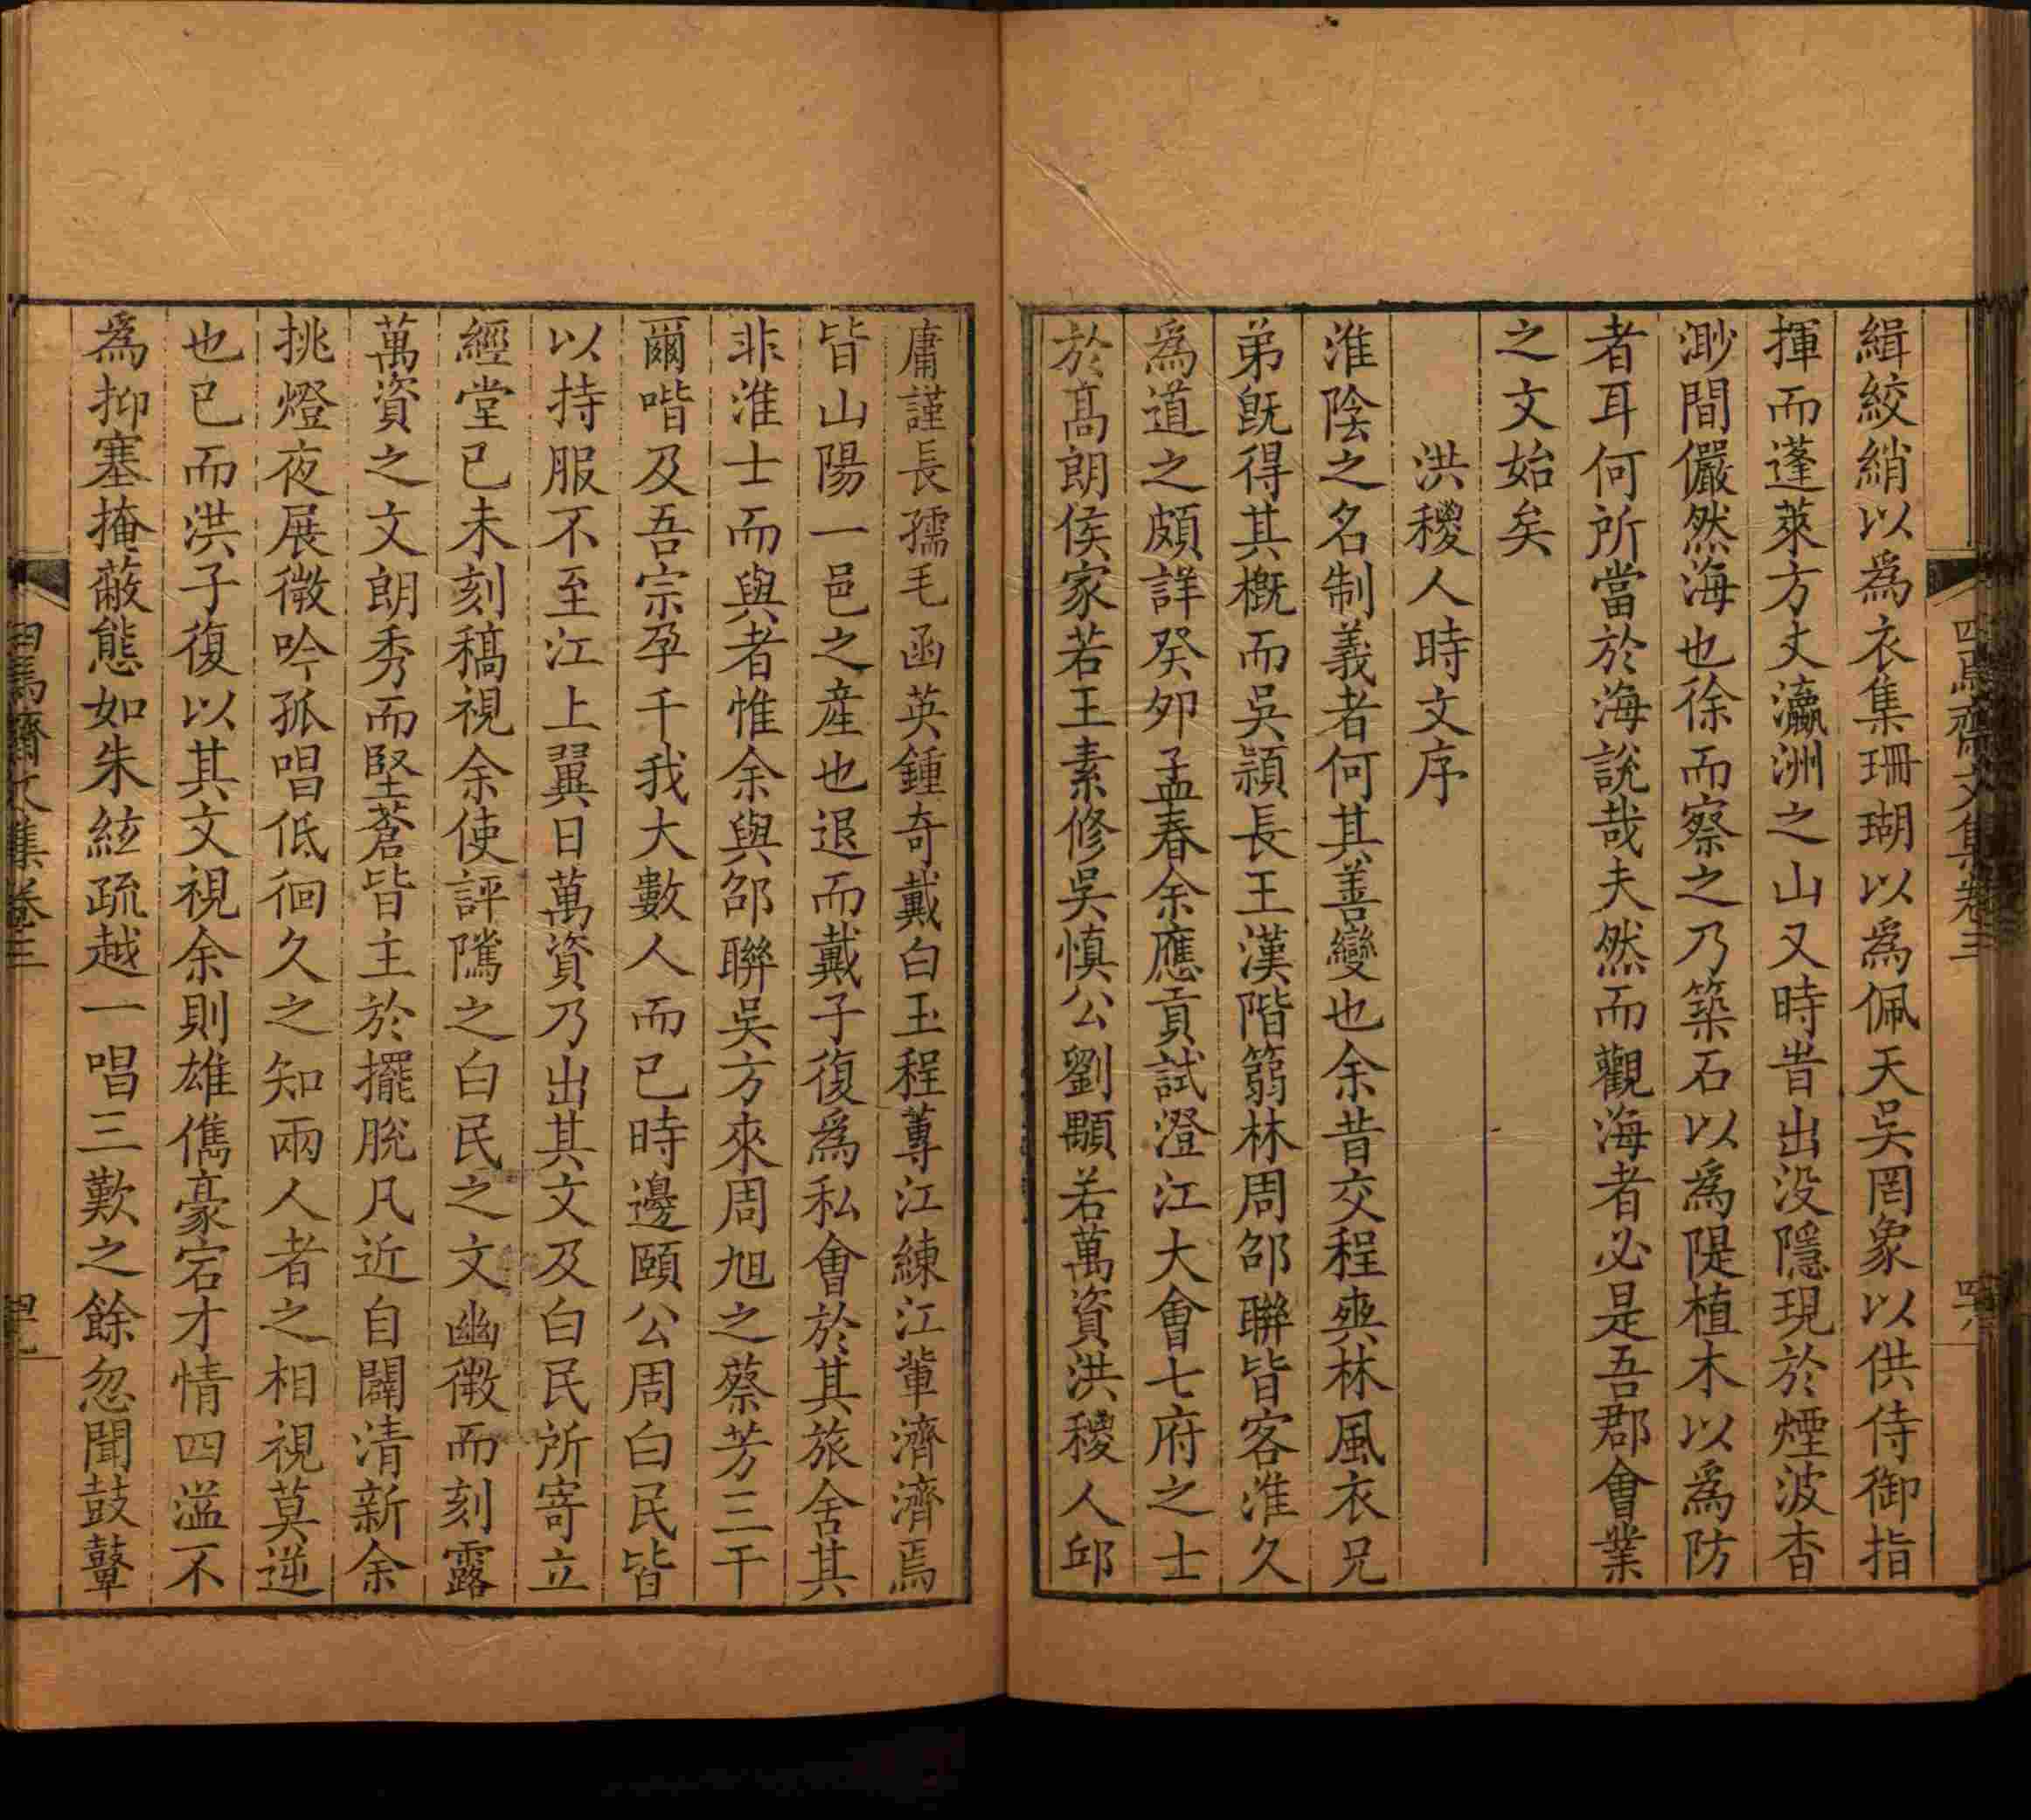 緝絞綃以爲衣集珊瑚以爲佩天吳罔象以供侍御指
揮而蓬萊方丈瀛洲之山又時昔出没隱現於煙波杳
渺間儼然海也徐而察之乃築石以爲隄植木以爲防
者耳何所當於海說哉夫然而觀海者必是吾郡會業
之文始矣
洪稷人時文序
淮陰之名制義者何其善變也余昔交程爽林風衣兄
弟既得其概而吳潁長王漢階篛林周邵聯皆客淮久
爲道之頗詳癸卯孟春余應貢試澄江大會七府之士
於高朗侯家若王素修吳慎公劉顒若萬資洪稷人邱
庸謹長孺毛函英鍾奇戴白玉程蓴江練江輩濟濟焉
皆山陽一邑之産也退而戴子復爲私會於其旅舍其
非淮士而與者惟余與邵聯吳方來周旭之蔡芳三干
爾喈及吾宗孕千我大數人而已時邊頤公周白民皆
以持服不至江上翼日萬資乃出其文及白民所寄立
經堂己未刻稿視余使評隲之白民之文幽微而刻露
萬資之文朗秀而堅蒼皆主於擺脫凡近自闢清新余
挑燈夜展微吟孤唱低徊久之知兩人者之相視莫逆
也已而洪子復以其文視余則雄儁豪宕才情四溢不
爲抑塞掩蔽態如朱絃疏越一唱三歎之餘忽聞鼓鼙
四焉齋文集卷三
四八